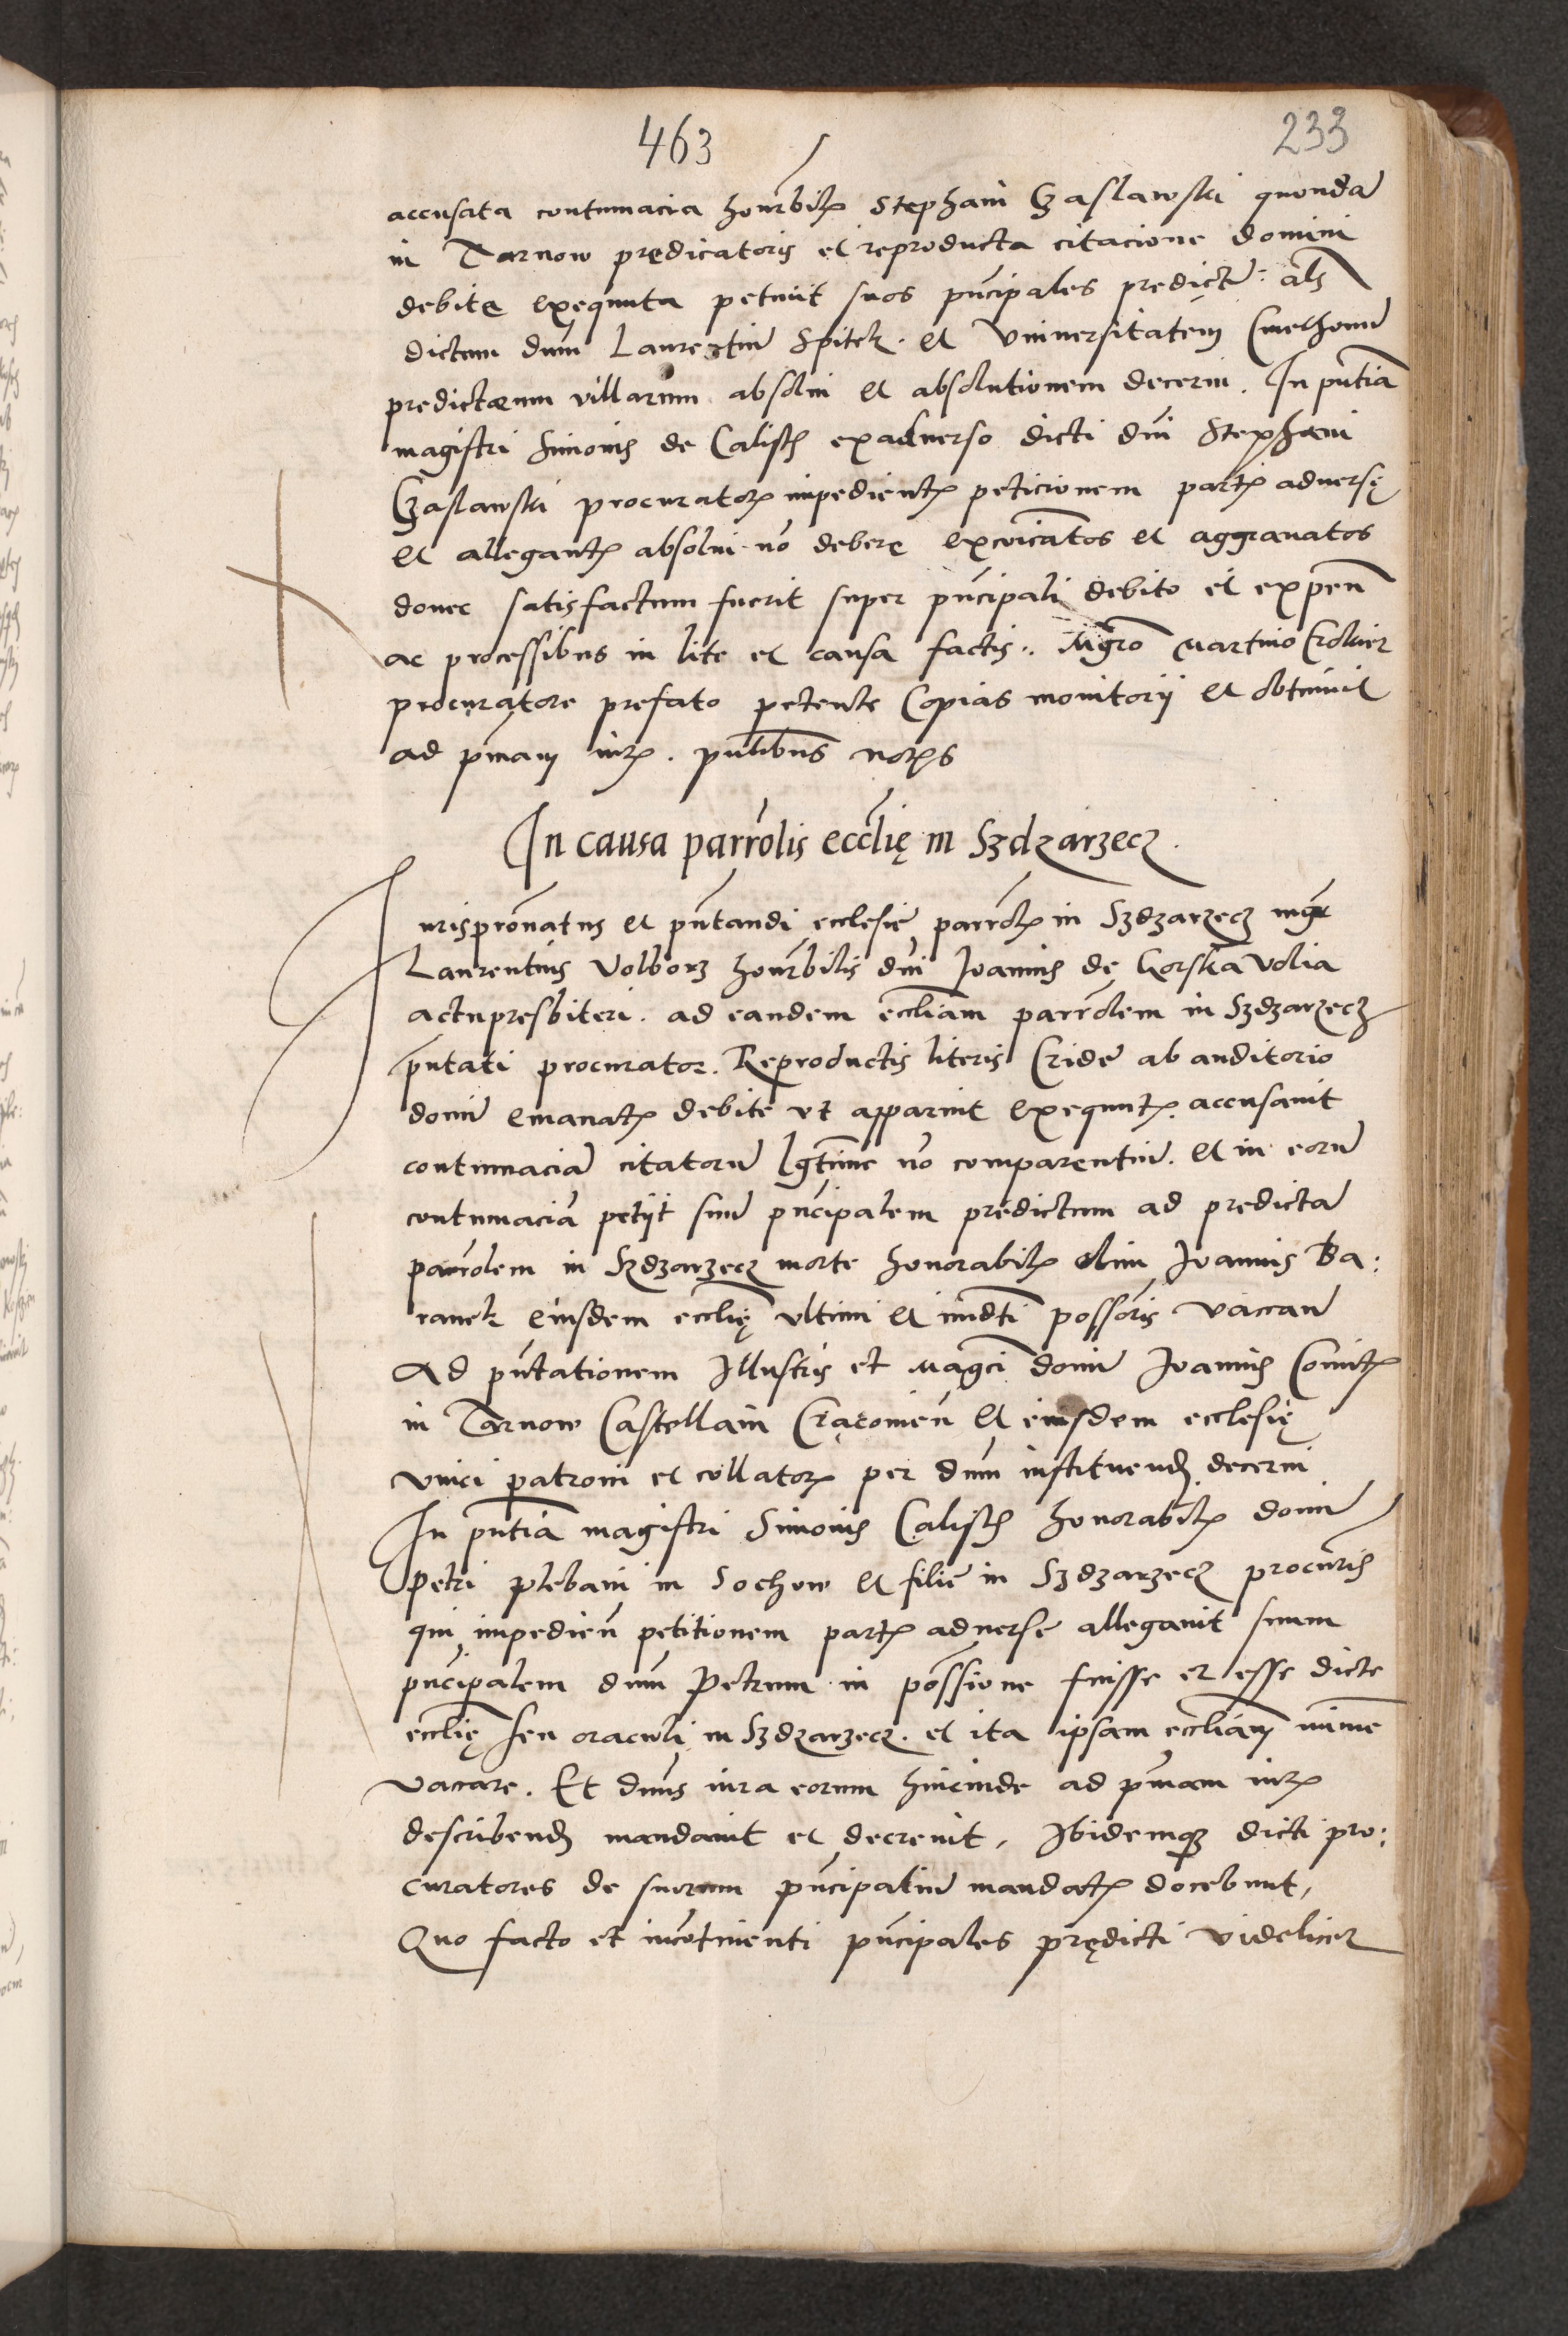 463
233
accusata contumacia honrbilis Stephani Czaslawski quonda
in Tarnow predicatoris et reproducta citacione domini
debite exequuta petiuit suos pncipales predict: als
dictum dnm Laurentiu Spitek. et Vniuersitatem Cmethonu
predictarum villarum absolui et absolutionem decerni. In pntia
magistri Simonis de Calisch exaduerso dicti dni Stephani
Czaslawski procuratoris impedientis peticionem partis aduersę
et allegantis absolui no debere excoicatos et aggrauatos
donec satisfactum fuerit super pncipali debito et expen
ac processibus in lite et causa factis. Mgro Martino
procuratore prefato petente Copias monitorij et obtinuit
ad pmam iuris. pntibus notis
In causa parrolis ecclię in Szdzarzecz.
Jurispronatus et pntandi ecclesie parrolis in Szdzarzecz mgr
Laurentius Volborz honrbilis dni Joannis de Gorska volia
actu presbiteri. ad eandem eccliam parrolem in Szdzarzecz
pntati procurator. Reproductis literis Cride ab auditorio
domi emanatis debite vt apparuit exequutis. accusauit
contumacia citatoru lgtime no comparentiu. et in eoru
contumacia petijt suu pncipalem predictum ad predicta
parrolem in Szdzarzecz morte honorabilis olim Joannis Ba:
ranek eiusdem ecclię vltimi et imdti possoris vacan
Ad pntationem Illustris et Magci domi Joannis Comitis
in Tarnow Castellani Cracouien et eiusdem ecclesię
vnici patroni et collatoris per dnm instituend decerni
In pntia magistri Simonis Calisch honorabilis domi
Petri plebani in Sochow et filie in Szdzarzecz procuris
qui impedien petitionem partis aduerse allegauit suum
pncipalem dnm Petrum in possione fuisse et esse dicte
ecclię seu oraculi in Szdzarzecz. et ita ipsam eccliam minime
vacare. Et dnus iura eorum hincinde ad pmam iuris
describend mandauit et decreuit, Ibidemq dicti pro:
curatores de suorum pncipaliu mandatis docebunt,
Quo facto et incotinenti pncipales prędicti videlicet